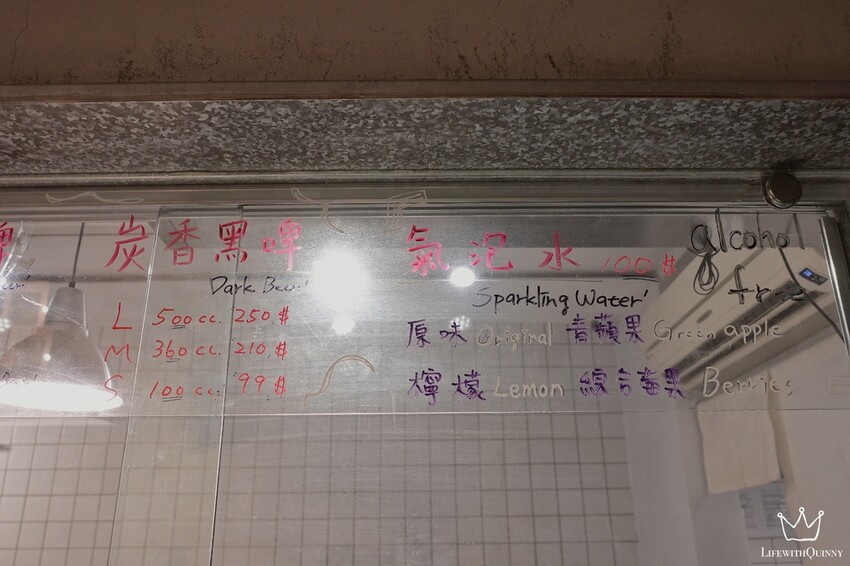 炭香黑啤
Dark Beer
L 500cc. 250.$
M 360cc. 210.$
S 100cc. 99.$
氣泡水 100$
alcohol
free
Sparkling Water
原味 Original 青蘋果 Green apple
檸檬 Lemon 綜合莓果 Berries
LIFEWITHQUINNY